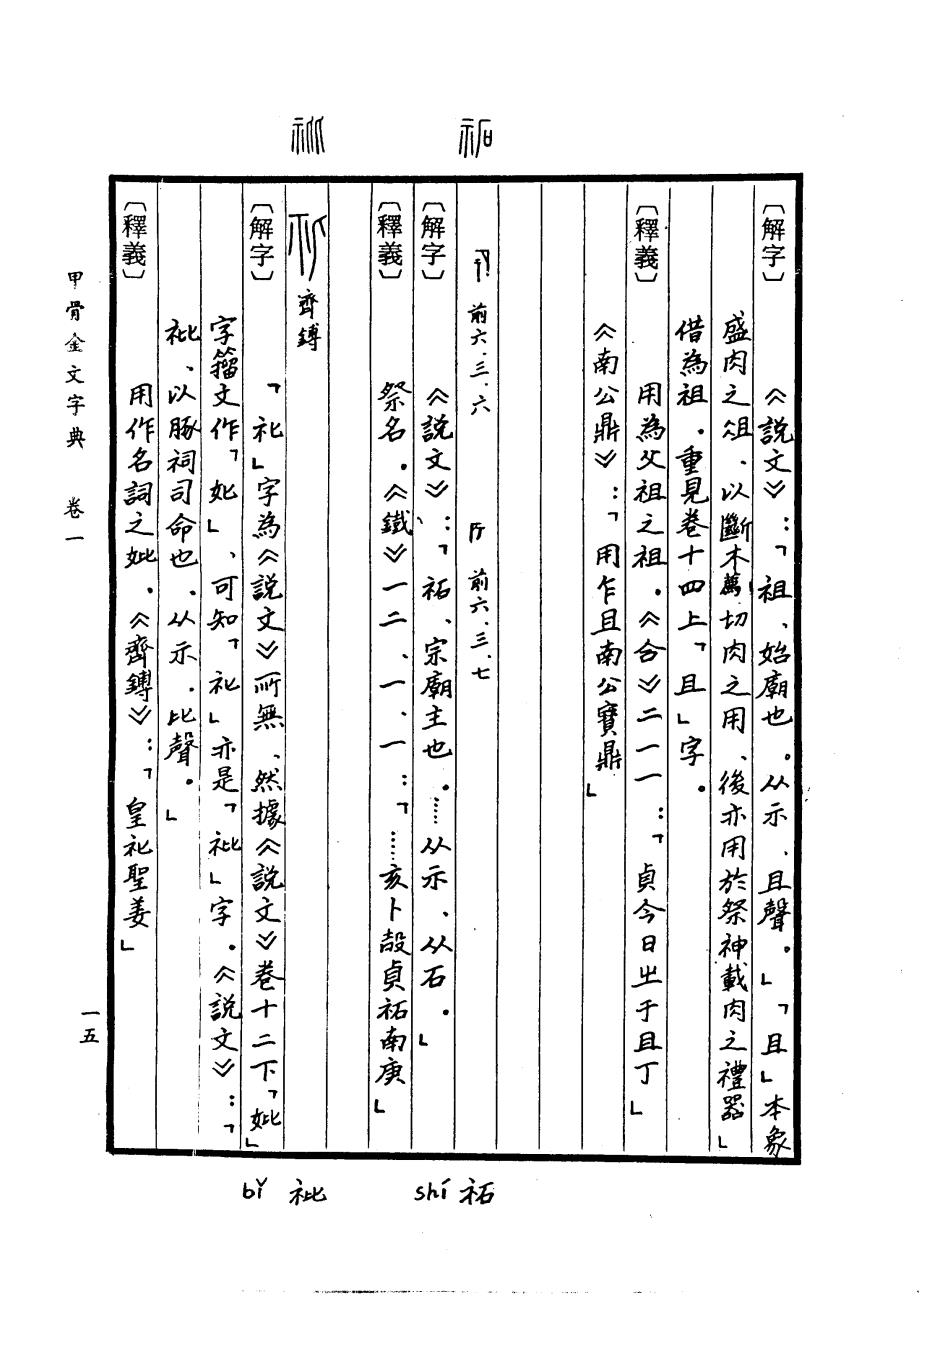 祏
祉
〔解字〕
《說文》：「祖、始廟也。从示、且聲。」「且」本象
盛肉之俎、以斷木薦切肉之用、後亦用於祭神載肉之禮器」
借為祖。重見卷十四上「且」字。
〔釋義〕
用為父祖之祖。《合》二一一：「貞今日㞢于且丁」
《南公鼎》：「用乍且南公寶鼎」
前六.三.六
前六.三.七
〔解字〕
《說文》：「祏、宗廟主也。……从示、从石。」
〔釋義〕
祭名。《鐵》一二、一、一：「……亥卜㱿貞祏南庚」
齊鎛
〔解字〕
「礼」字為《說文》所無、然據《說文》卷十二下「妣」
字籀文作「妣」、可知「礼」亦是「祉」字。《說文》：「
祉、以豚祠司命也。从示.比聲。」
〔釋義〕
用作名詞之妣。《齊鎛》：「皇礼聖姜」
甲骨金文字典 卷一
一五
shí 祏
bǐ